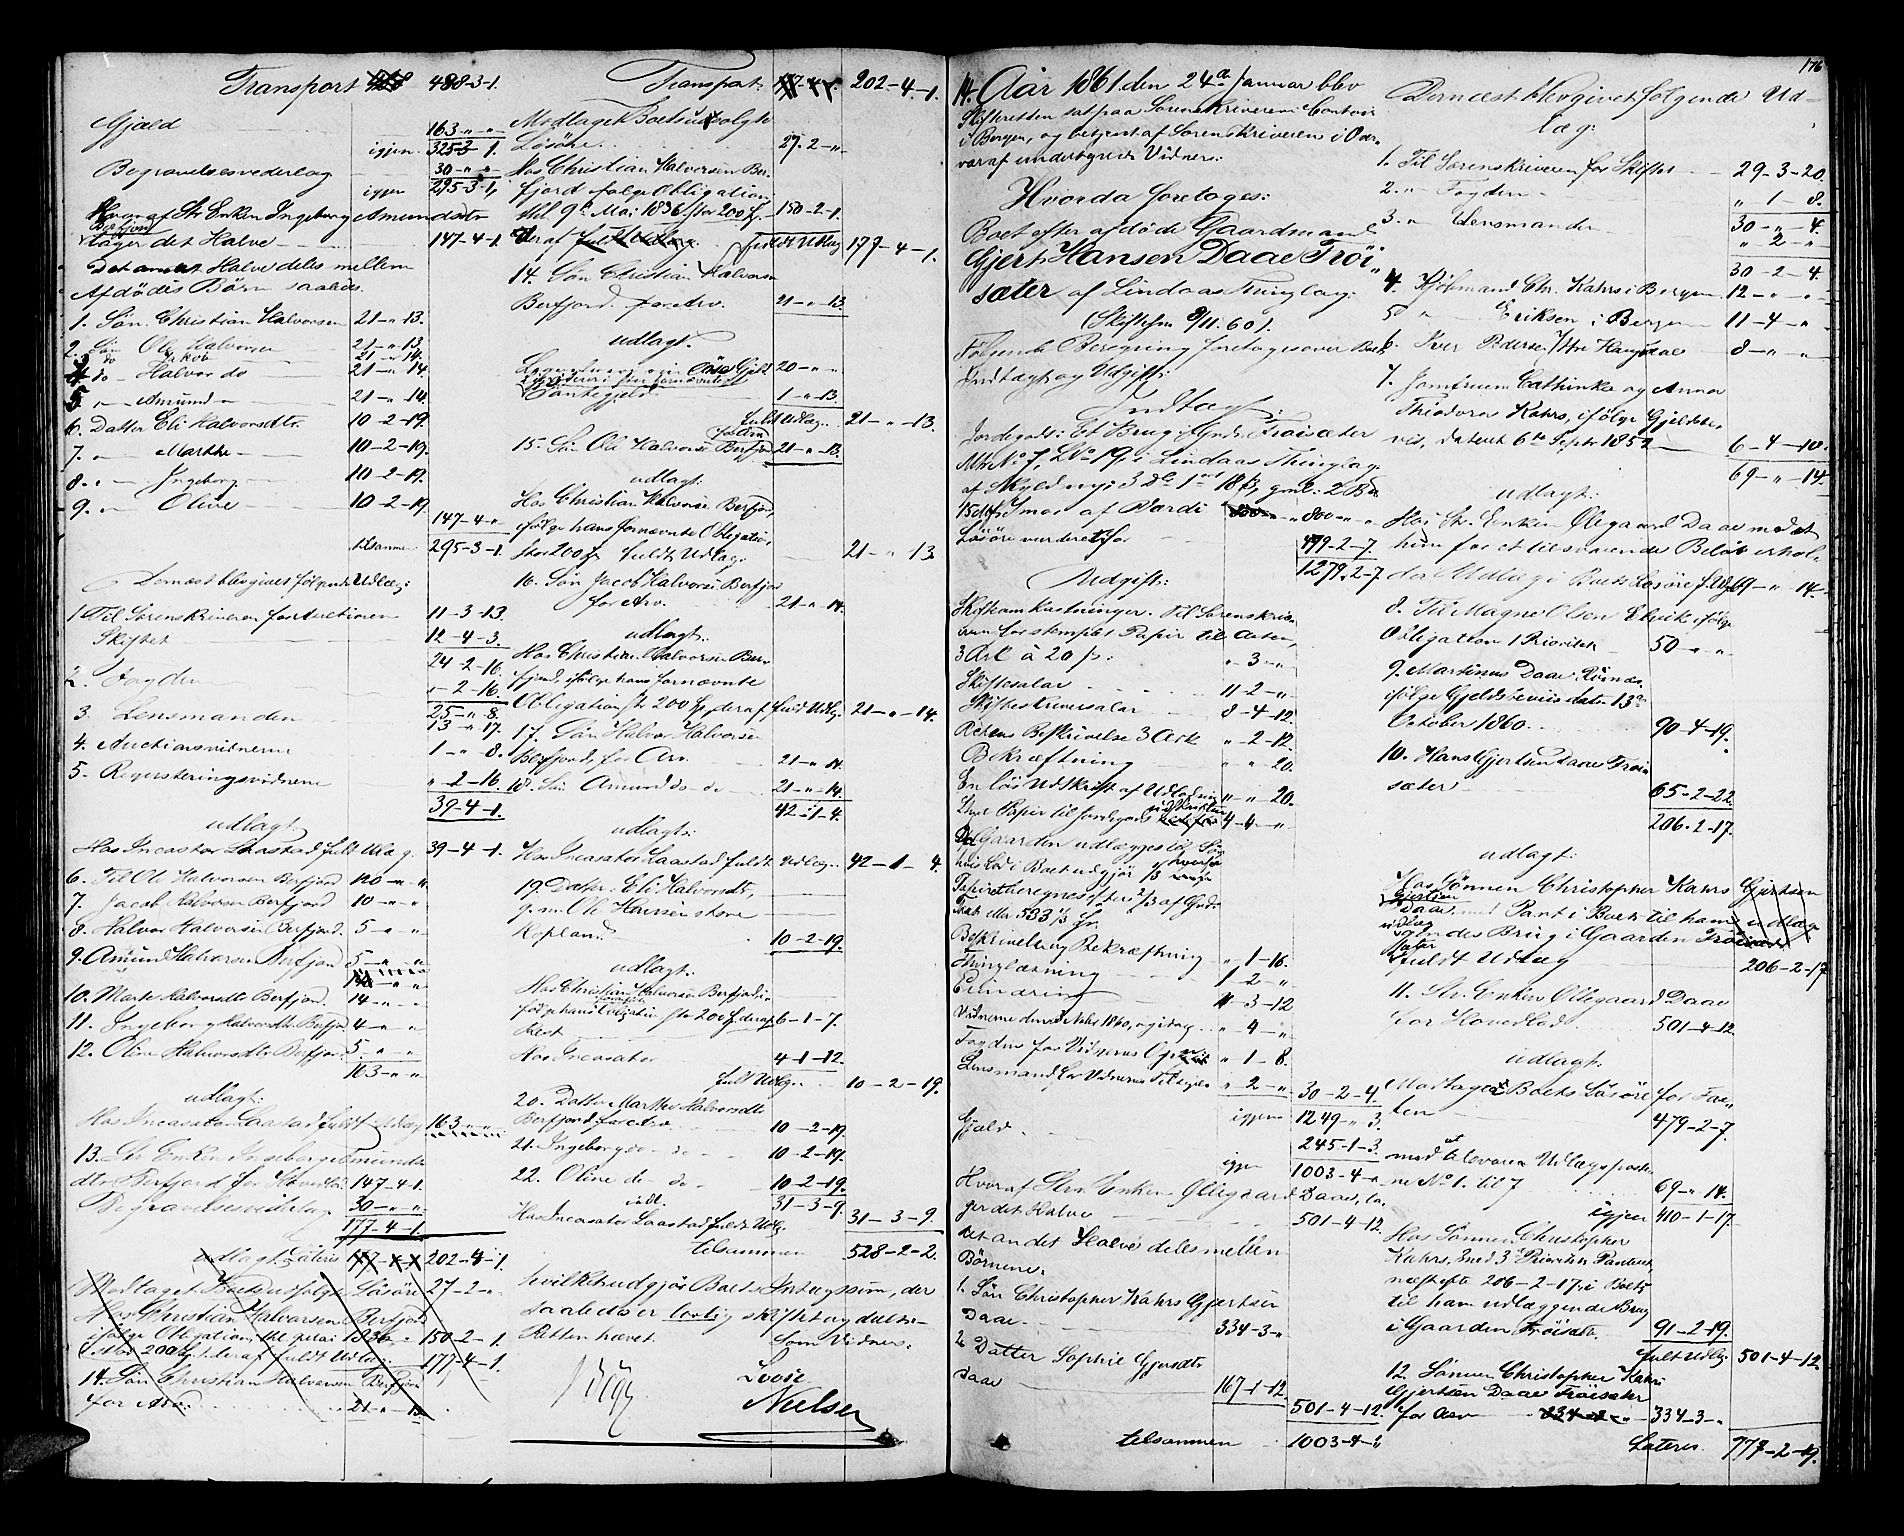 Transport 488-3-1.
Gjæld 163-"-"
igjen 325-3-1.
Begravelsesvederlag 30-"-"
igjen 295-3-1.
Hvoraf Str. Enken Ingeborg Amundsdtr
Berfjord
tager det Halve 147-4-1.
Det andet Halve deles mellem
Afdødes Børn saaledes
1. Søn Christian Halvorsen 21-"-13.
2. Søn Ole Halvorsen 21-"-13.
3 do Jakob 21-"-14.
4 do Halvor do 21-"-14.
5 " Amund " 21-"-14.
6. Datter Eli Halvorsdtr. 10-2-19.
7. " Marthe 10-2-19.
8. " Ingeborg 10-2-19.
9. " Oline 10-2-19
147-4-"
tilsammen 295-3-1.
Dernæst blev givet følgende Udlæg:
1. Til Sorenskriveren for Auctionen 11-3-13.
Skiftet 12-4-3.
24-2-16.
2. Fogden "-2-16.
25-"-8.
3. Lensmanden 13-"-17.
4. Auctionsvidnerne 1-"-8.
5. Registreringsvidnerne "-2-16.
39-4-1.
udlagt
Hos Incasator Laastad fuldt Udlæg. 39-4-1.
6. Til Ole Halvorsen Berfjord 120-"-"
7. Jacob Halvorsen Berfjord 10-"-"
8. Halvor Halvorsen Berfjord. 5-"-"
9. Amund Halvorsen Berfjord 5-"-"
10. Marthe Halvorsdtr Berfjord. 14-"-"
11. Ingeborg Halvorsdtr Berfjord 4-"-"
12. Oline Halvorsdtr Berfjord 5-"-"
163-"-"
udlagt:
Hos Incasator Laastad fuldt Udlæg 163-"-"
13. Str Enken Ingeborg Amunds-
dtr Berfjord for Hovedlod 147-4-1.
Begravelsesvederlag 30-"-"
177-4-1.
udlagt Lateris 202-4-1.
Modtaget Boets udsolgte Løsøre 27-2-"
Hos Christian Halvorsen Berfjord
ifølge Obligation, thl. 9 Mai 1836 150-2-1.
stor 200 deraf fuldt Udlæg 177-4-1.
14. Søn Christian Halvorsen Berfjord
for Arv 21-"-13

Transport 202-4-1.
Modtaget Boets usolgte
Løsøre 27-2-"
Hos Christian Halvorsen Ber-
fjord ifølge Obligation,
thl. 9de Mai 1836 stor 200 150-2-1.
deraf fuldt Udlæg 177-4-1.
14. Søn Christian Halvorsen
Berfjord for Arv. 21-"-13.
udlagt.
20-"-"
Pantegjeld 1-"-13.
fuldt Udlæg 21-"-13.
15. Søn Ole Halvorsen Berfjord 21-"-13.
udlagt:
Hos Christian Halvorsen Berfjord,
ifølge hans fornævnte Obligation,
stor 200 fuldt Udlæg: 21-"-13.
16. Søn Jacob Halvorsen Berfjord
for Arv. 21-"-14.
udlagt:
Hos Christian Halvorsen Ber-
fjord, ifølge hans fornævnte
Obligation stor 200 deraf fuldt Udlæg 21-"-14.
17. Søn Halvor Halvorsen
Berfjord, for Arv. 21-"-14.
18. Søn Amund do- do- 21-"-14.
42-1-4.
udlagt:
Hos Incasator Laastad fuldt Udlæg. 42-1-4.
19. Datter Eli Halvorsdtr,
g. m. Ole Hansen store
Hopland. 10-2-19.
udlagt:
Hos Christian Halvorsen Berfjord i-
følge hans Obligation stor 200 deraf 6-1-7.
Rest
Hos Incasator 4-1-12.
fuldt Udlæg 10-2-19.
20. Datter Marthe Halvorsdtr
Berfjord for Arv 10-2-19.
21. Ingeborg do- do- 10-2-19.
22. Oline do- do- 10-2-19.
udl. 31-3-9.
Hos Incasator Laastad fuldt Udlæg. 31-3-9.
tilsammen 528-2-2.
hvilket udgjør Boets Indtægtssum, der
saaledes er lovlig skiftet og delt.-
Retten hævet. Som Vidner:
Nielsen

176
14. Aar 1861 den 24de Januar blev
Skifteretten sat paa Sorenskriverens Contoir
i Bergen, og betjent af Sorenskriveren i Over-
vær af undertegnede Vidner:
Hvorda foretages:
Boet efter afdøde Gaardmand
Gjert Hansen Daae Trøi-
sæter af Lindaas Thinglag:
(Skiftesm 9/11. 60).
Følgende Beregning foretages over Boets
Indtægt og Udgift:
Indtægt:
Jordegods: Et Brug i Gaarden Trøisæter
Mtr No 7, L No 19, i Lindaas Thinglag
af Skyld ny: 3 Dr. 1 ort 18 s, gml. 2
af Værdi 800-"-"
Løsøre vurderet for 479-2-7.
1279-2-7.
Udgift:
Skifteomkostninger. Til Sorenskri-
veren for stemplet Papir til Acten,
3 Ark à 20 s: "-3-"
Skiftesalær 11-2-"
Skifteskriversalær 8-4-12.
Actens Beskrivelse 3 Ark "-2-12.
Bekræftning "-"-20.
En løs Udskrift af Udlodning "-"-20.
Papir til Jordegods 4-4-"
Da Gaarden udlægges til Søn
hvis Lod i Boet udgjør 1/3 hvorfor
Papiret beregnes efter 2/3 af Gods
533 1/3
Beskrivelse og Bekræftning "-1-16.
Thinglæsning 1-2-"
4-3-12
Vidnerne den Novbr 1860, og idag "-4-"
Fogden for Vidners Opn. "-1-8.
Lensmand for Vidners Tilsigelse "-2-"
30-2-4.
igjen 1249-"-3.
Gjæld. 245-1-3.
igjen 1003-4-"
Hvoraf Str. Enken Ollegaard Daae, ta-
ger det Halve 501-4-12.
det andet Halve deles mellem
Børnene.
1. Søn Christopher Kahrs Gjertsen
Daae. 334-3-"
2. Datter Sophie Gjertsdtr
Daae 167-1-12.
501-4-12.
tilsammen 1003-4-"

Dernæst blev givet følgende Ud-
læg:
1. Til Sorenskriveren for Skiftet 29-3-20.
2. " Fogden "-1-8.
30-"-4.
3. " Lensmanden "-2-"
30-2-4.
4. Kjøbmand Chr. Kahrs i Bergen. 12-"-"
5 " Eriksen i Bergen 11-4-"
6. Iver Pedersen 8-"-"
7. Jomfruerne Cathinka og Anna
Theodora Kahrs, ifølge Gjeldsbe-
viis, dateret 6te Septr 1852 6-4-10.
69-"-14.
udlagt:
Hos Str. Enken Ollegaard Daae mod at
hun for et tilsvarende Beløb erhol-
der Udlæg i Boets Løsøre f. Udlg 69-"-14.
8. Til Magne Olsen Elvik ifølge
Obligation 1 Prioritet 50-"-"
9. Martinus Daae Risnes,
ifølge Gjeldsbeviis dater. 13de
October 1860. 90-4-19.
10. Hans Gjertsen Daae Trøi-
sæter 65-2-22
206-2-17.
udlagt:
Hos Sønnen Christopher Kahrs
Gjertsen
Daae, med Pant i Boets til ham
udlæg-
gendes Brug i Gaarden Trøi-
sæter
fuldt Udlæg 206-2-17
11. Str. Enken Ollegaard Daae
for Hovedlod. 501-4-12.
udlagt:
Modtaget Boets Løsøre for Tax-
ten 479-2-7.
mod at tilsvare Udlægsposter-
ne No 1. til 7 69-"-14.
igjen 410-1-17.
Hos Sønnen Christopher
Kahrs, med 3die Prioritets Panteret
næst efter 206-2-17, i Boets
til ham udlæggende Brug
i Gaarden Trøisæter. 91-2-19.
fuldt Udlæg 501-4-12.
12 Sønnen Christopher Kahrs
Gjertsen Daae Trøisæter
for Arv 334-3-"
Lateris. 777-2-19.